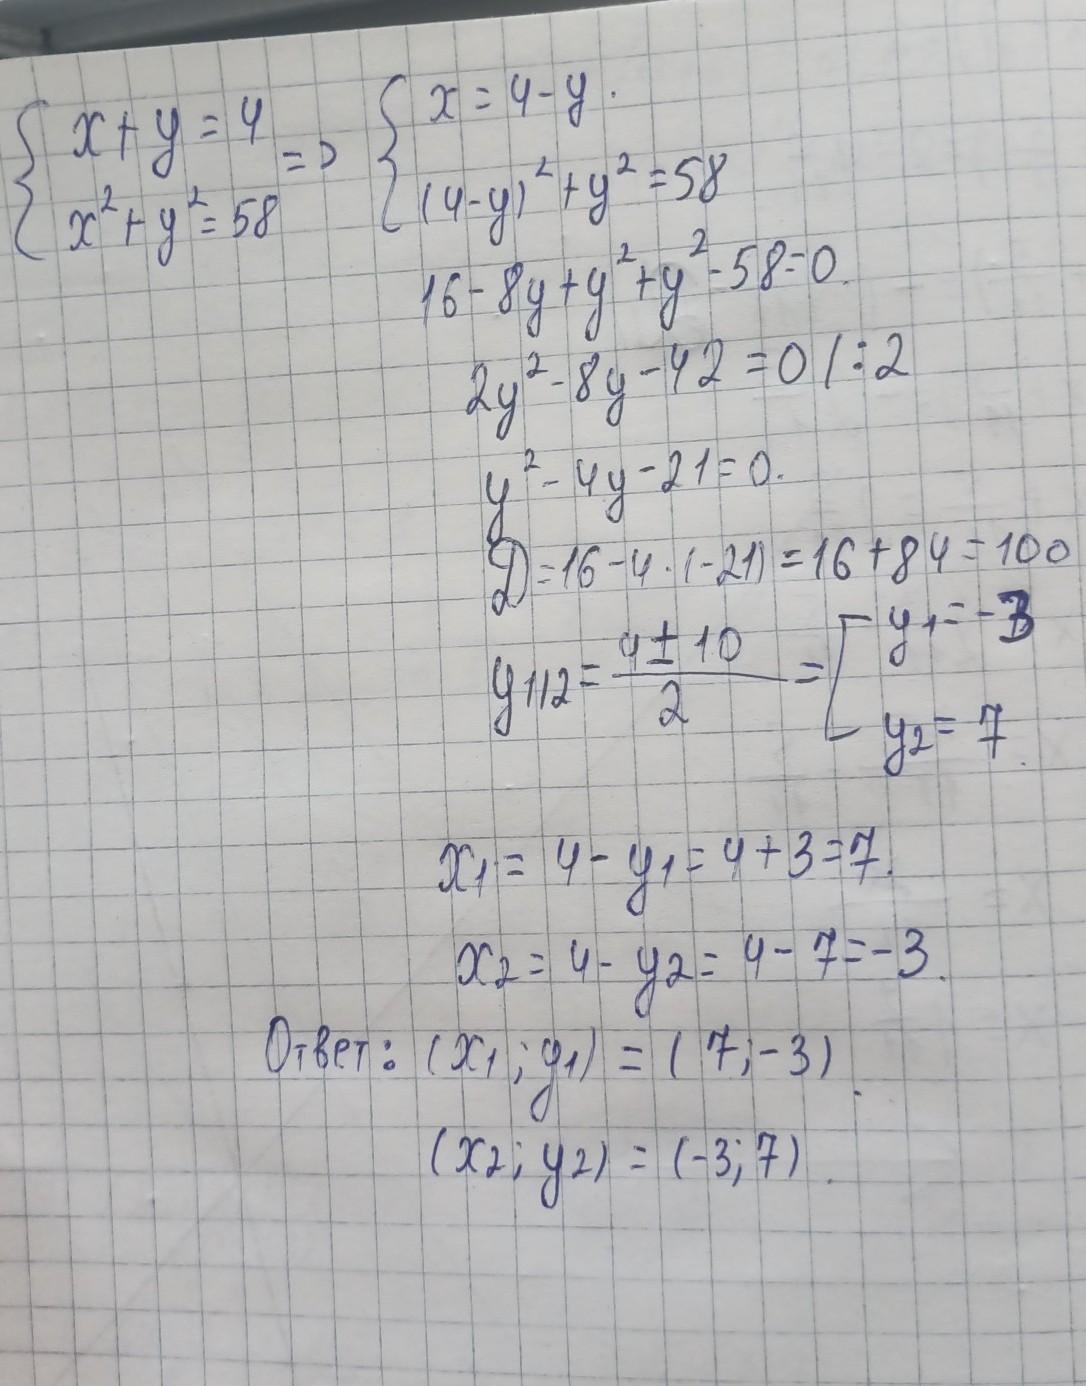 { x + y = 4 => { x = 4 - y.
x² + y² = 58 (4-y)² + y² = 58
16 - 8y + y² + y² - 58 = 0.
2y² - 8y - 42 = 0 / : 2
y² - 4y - 21 = 0.
D = 16 - 4 · (-21) = 16 + 84 = 100
y1,2 = (4 ± 10)/2 = [ y₁ = -3
y₂ = 7.
x₁ = 4 - y₁ = 4 + 3 = 7.
x₂ = 4 - y₂ = 4 - 7 = -3.
Ответ: (x₁; y₁) = (7; -3).
(x₂; y₂) = (-3; 7).